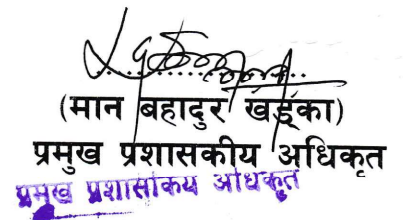 (मान बहादुर खड्का)
प्रमुख प्रशासकीय अधिकृत
प्रमुख प्रशासकिय अधिकृत